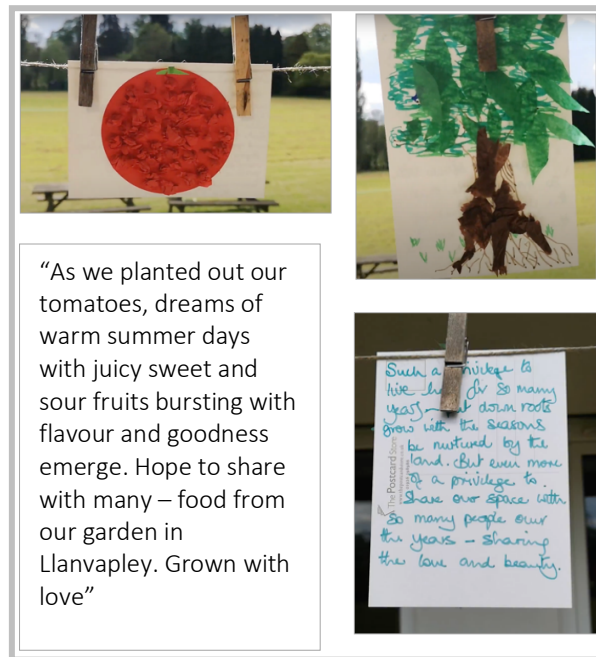 “As we planted out our
tomatoes, dreams of
warm summer days
with juicy sweet and
sour fruits bursting with
flavour and goodness
emerge. Hope to share
with many – food from
our garden in
Llanvapley. Grown with
love”
Such a privilege to
live for so many
years – put down roots
grow with the seasons
be nurtured by the
land. But even more
of a privilege to
share our space with
so many people over
the years – sharing
the love and beauty.
The Postcard Store